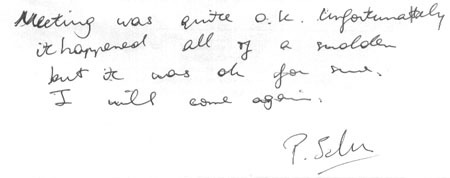 Meeting was quite o.k. Unfortunattely
it happened all of a sudden
but it was ok for sure.
I will come again.
P.